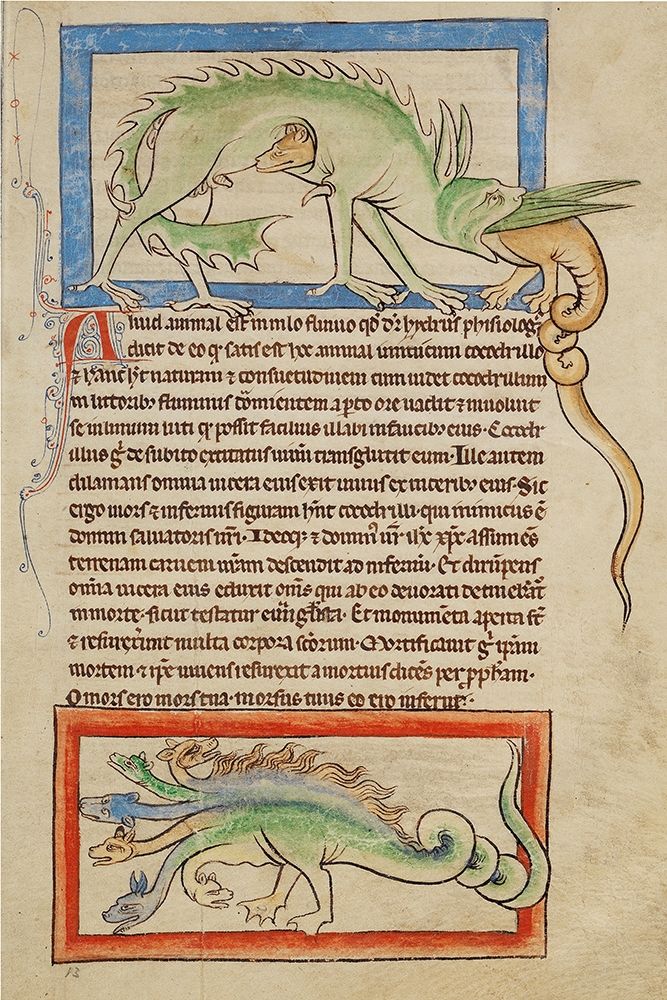 Aliud animal est in nilo fluuio qd̓ dr̄ hydrus phisiologꝰ
dicit de eo qꝫ satis est hoc animal inimicum cocodrillo
⁊ hanc h̄t naturam ⁊ consuetudinem cum uidet cocodrillum
in littoribꝫ fluminis dormientem aperto ore uadit ⁊ inuoluit
se in limum luti qꝫ possit facilius illabi in faucibꝫ eius. Cocodr
illus gͥ de subito excitatus uiuum transglutit eum. Ille autem
dilanians omnia uicera eius exit uiuus ex uiceribꝫ eius. Sic
ergo mors ⁊ infernus figuram hn̄t cocodrilli. qui inimicus ē
domini saluatoris nr̄i. Ideoqꝫ ⁊ dominꝰ nr̄ ihc xp̄c assumēs
terrenam carnem nr̄am descendit ad infernū. Et dirūpens
om̄ia uicera eius eduxit om̄s qui ab eo deuorati detinebāt᷑
in morte. sicut testatur euu̅gl̄ista. Et monumēta aperta st̄
⁊ resurrex̄unt multa corpora sc̄orum. Mortificauit gͥ ipsam
mortem ⁊ ip̄e uiuens resurexit a mortuis dicēs per ꝓph̄am.
O mors ero mors tua. morsus tuus ero inferne.
13